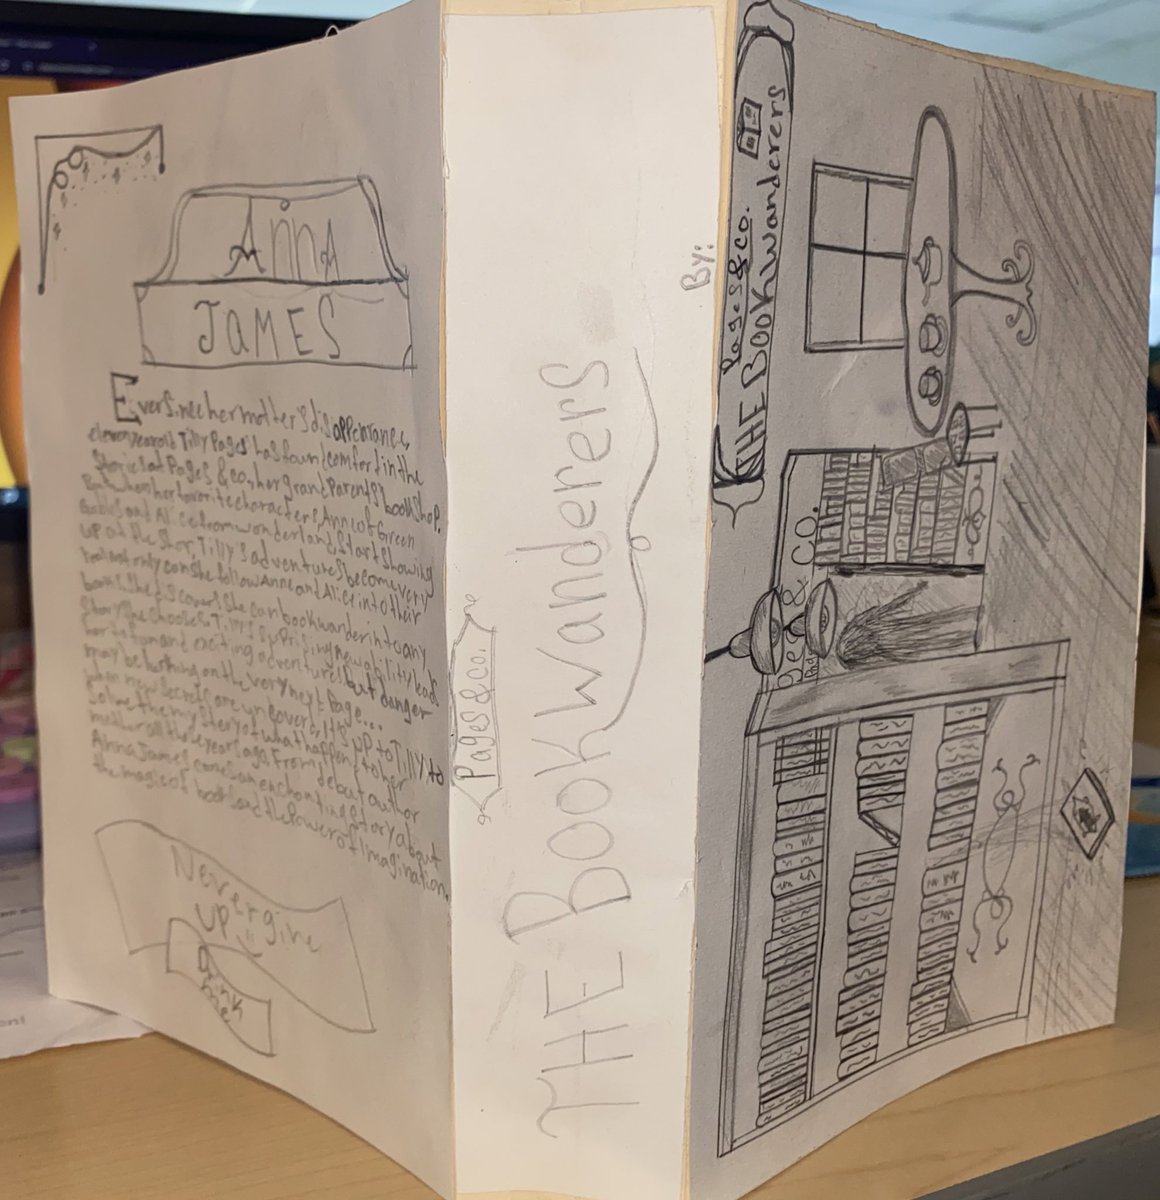 AnnA
JAMES
Ever since her mother's disappearance,
eleven year old Tilly Pages has found comfort in the
stories at Pages & co, her grand Parent's bookshop.
But when her favorite characters, Anne of Green
Gables and Alice from wonderland, start showing
up at the shop, Tilly's adventures become very
real not only can she follow Anne and Alice into their
books she discovers she can bookwander into any
story she chooses Tilly's surprising new ability leads
her to fun and exciting adventures but danger
may be lurking on the very next Page...
when new secrets are uncovered, it's up to Tilly to
solve the mystery of what happend to her
mother all those years ago. From debut author
Anna James comes an enchanting story about
the magic of books and the Power of Imagination.
Never give
UP
Drink
me
Pages & co.
THE BookWanderers
By:
Pages & co.
THE BookWanderers
ges & CO.